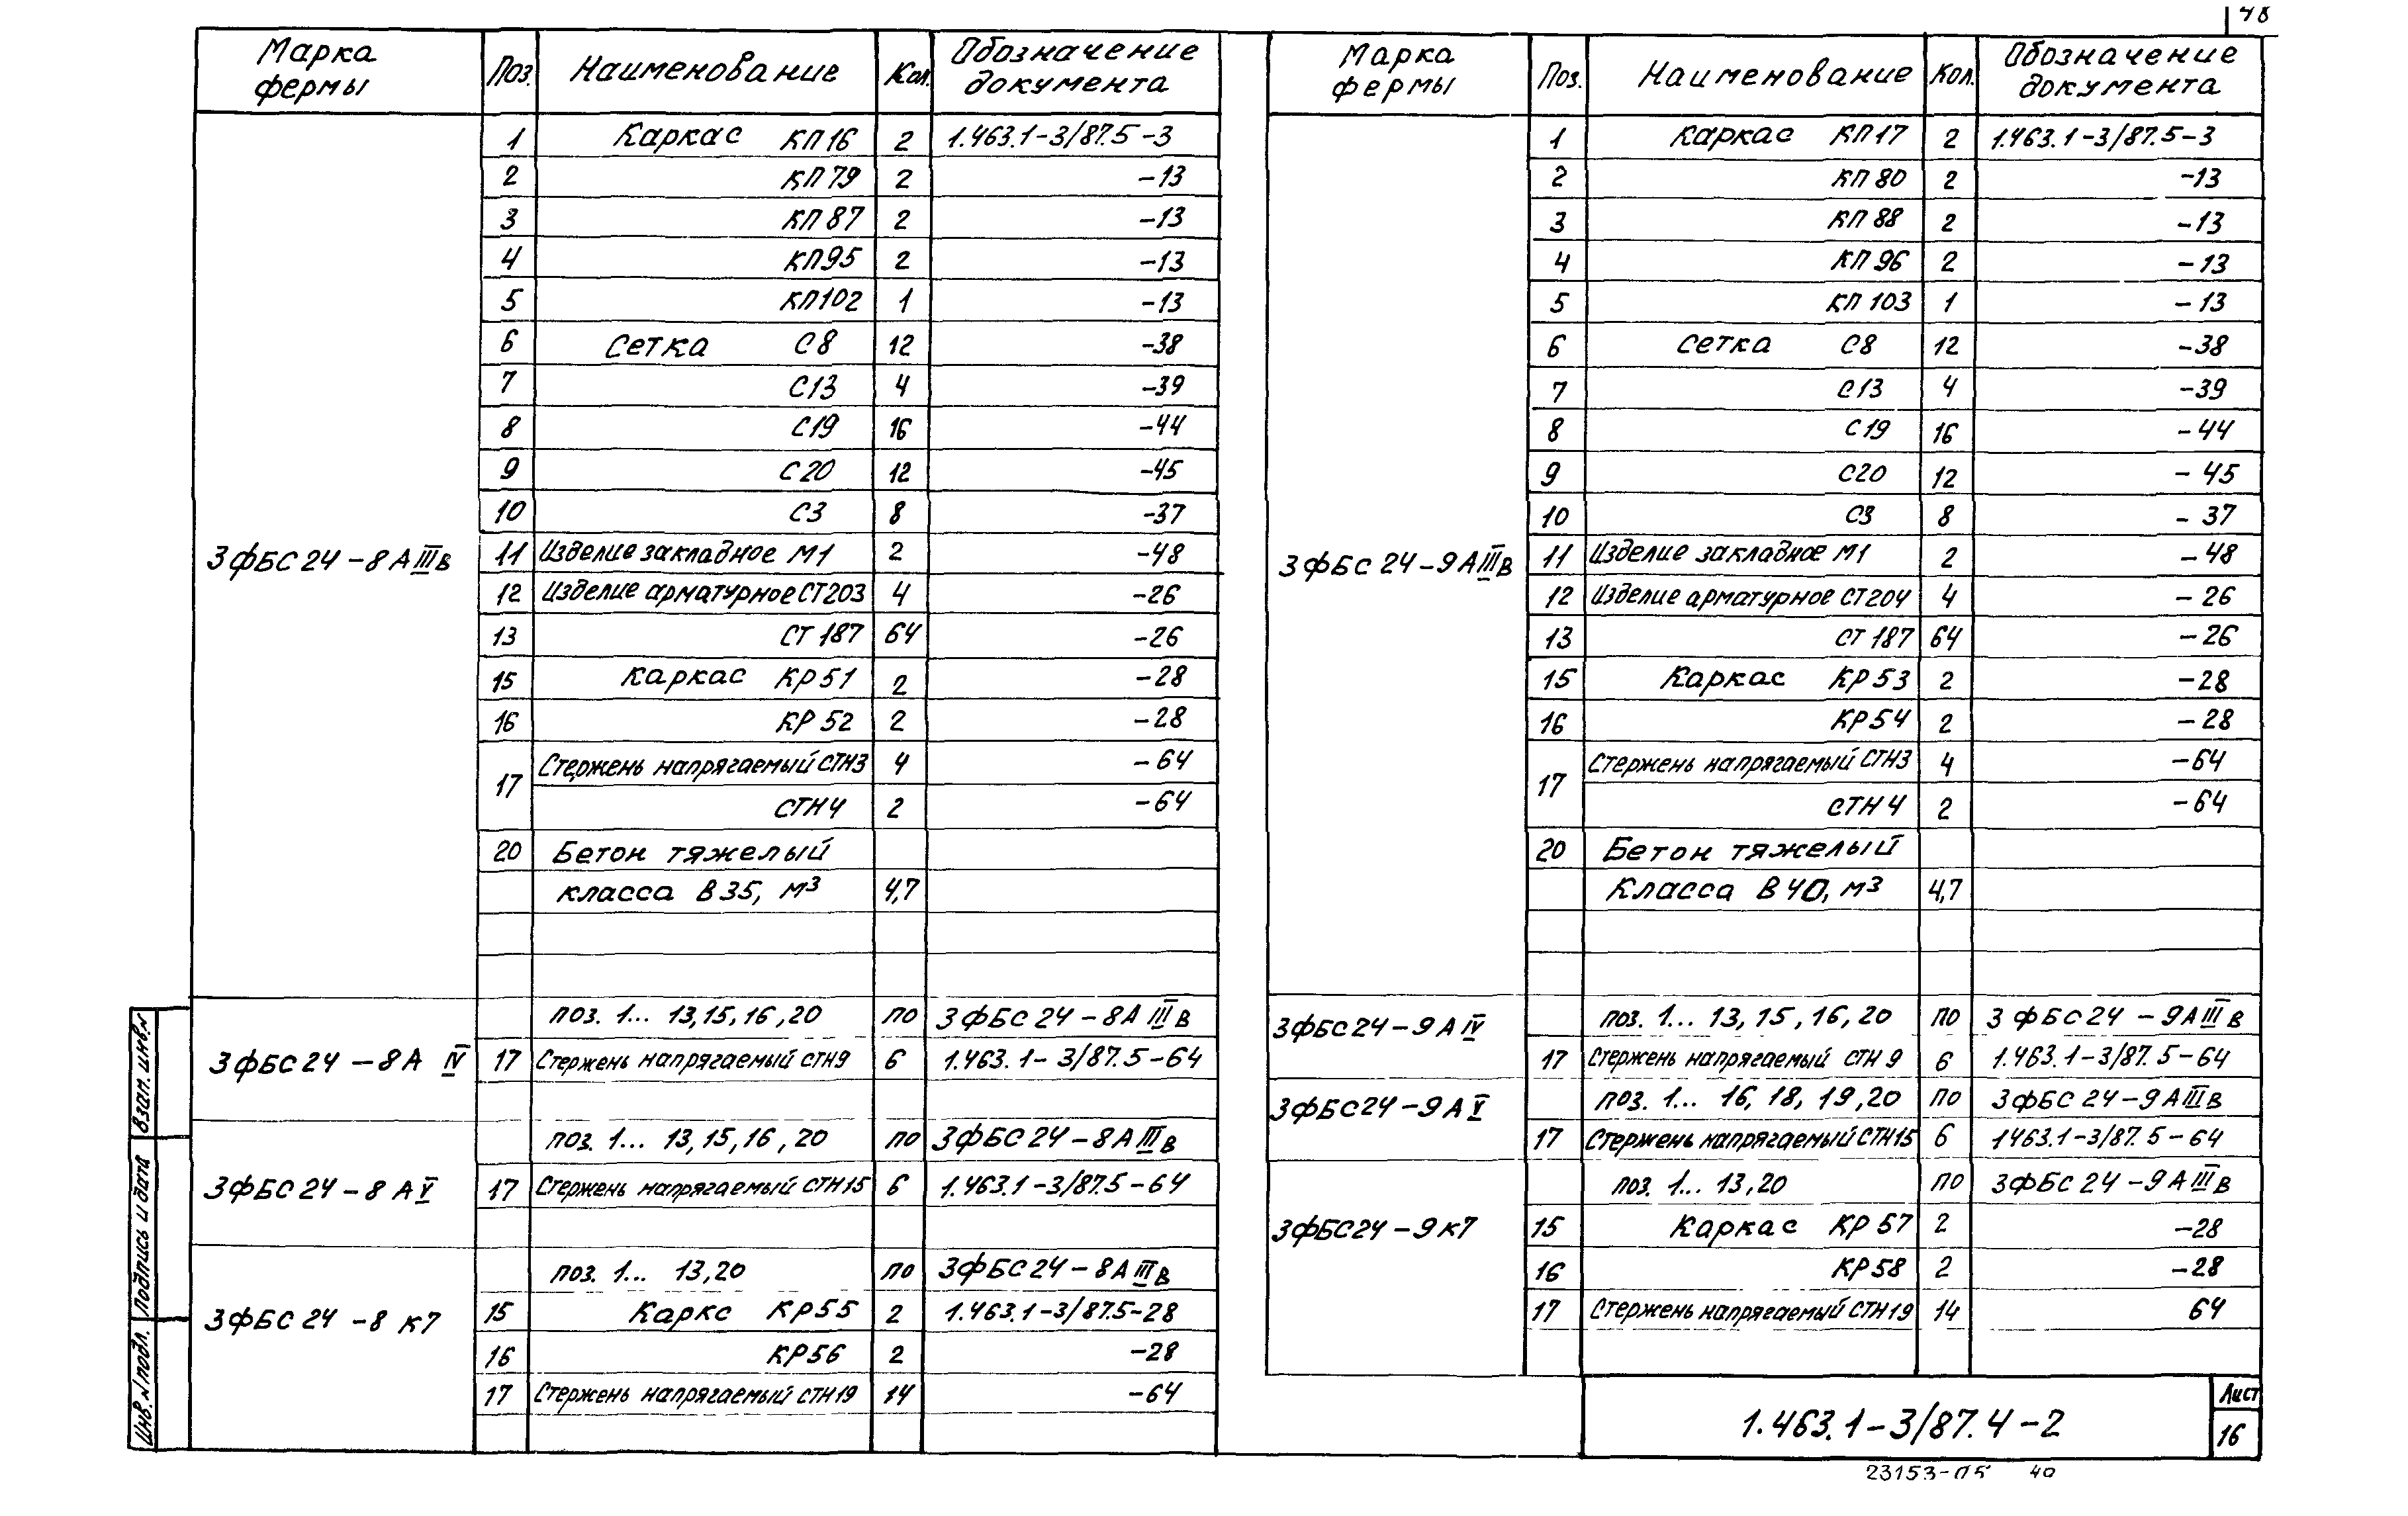 48
Марка фермы Поз. Наименование Кол. Обозначение документа
3ФБС24-8АIIIв
1 Каркас КП16 2 1.463.1-3/87.5-3
2 КП79 2 -13
3 КП87 2 -13
4 КП95 2 -13
5 КП102 1 -13
6 Сетка С8 12 -38
7 С13 4 -39
8 С19 16 -44
9 С20 12 -45
10 С3 8 -37
11 Изделие закладное М1 2 -48
12 Изделие арматурное СТ203 4 -26
13 СТ187 64 -26
15 Каркас КР51 2 -28
16 КР52 2 -28
17 Стержень напрягаемый СТН3 4 -64
СТН4 2 -64
20 Бетон тяжелый
класса В35, м³ 4,7
3ФБС24-8АIV
поз. 1... 13,15,16,20 по 3ФБС24-8АIIIв
17 Стержень напрягаемый СТН9 6 1.463.1-3/87.5-64
3ФБС24-8АV
поз. 1... 13,15,16,20 по 3ФБС24-8АIIIв
17 Стержень напрягаемый СТН15 6 1.463.1-3/87.5-64
3ФБС24-8К7
поз. 1... 13,20 по 3ФБС24-8АIIIв
15 Каркс КР55 2 1.463.1-3/87.5-28
16 КР56 2 -28
17 Стержень напрягаемый СТН19 14 -64
Марка фермы Поз. Наименование Кол. Обозначение документа
3ФБС24-9АIIIв
1 Каркас КП17 2 1.463.1-3/87.5-3
2 КП80 2 -13
3 КП88 2 -13
4 КП96 2 -13
5 КП103 1 -13
6 Сетка С8 12 -38
7 С13 4 -39
8 С19 16 -44
9 С20 12 -45
10 С3 8 -37
11 Изделие закладное М1 2 -48
12 Изделие арматурное СТ204 4 -26
13 СТ187 64 -26
15 Каркас КР53 2 -28
16 КР54 2 -28
17 Стержень напрягаемый СТН3 4 -64
СТН4 2 -64
20 Бетон тяжелый
Класса В40, м³ 4,7
3ФБС24-9АIV
поз. 1... 13,15,16,20 по 3ФБС24-9АIIIв
17 Стержень напрягаемый СТН9 6 1.463.1-3/87.5-64
3ФБС24-9АV
поз. 1... 16,18,19,20 по 3ФБС24-9АIIIв
17 Стержень напрягаемый СТН15 6 1463.1-3/87.5-64
3ФБС24-9К7
поз. 1... 13,20 по 3ФБС24-9АIIIв
15 Каркас КР57 2 -28
16 КР58 2 -28
17 Стержень напрягаемый СТН19 14 64
Взам. инв.№
Подпись и дата
Инв.№ подл.
1.463.1-3/87.4-2
Лист
16
23153-05 40